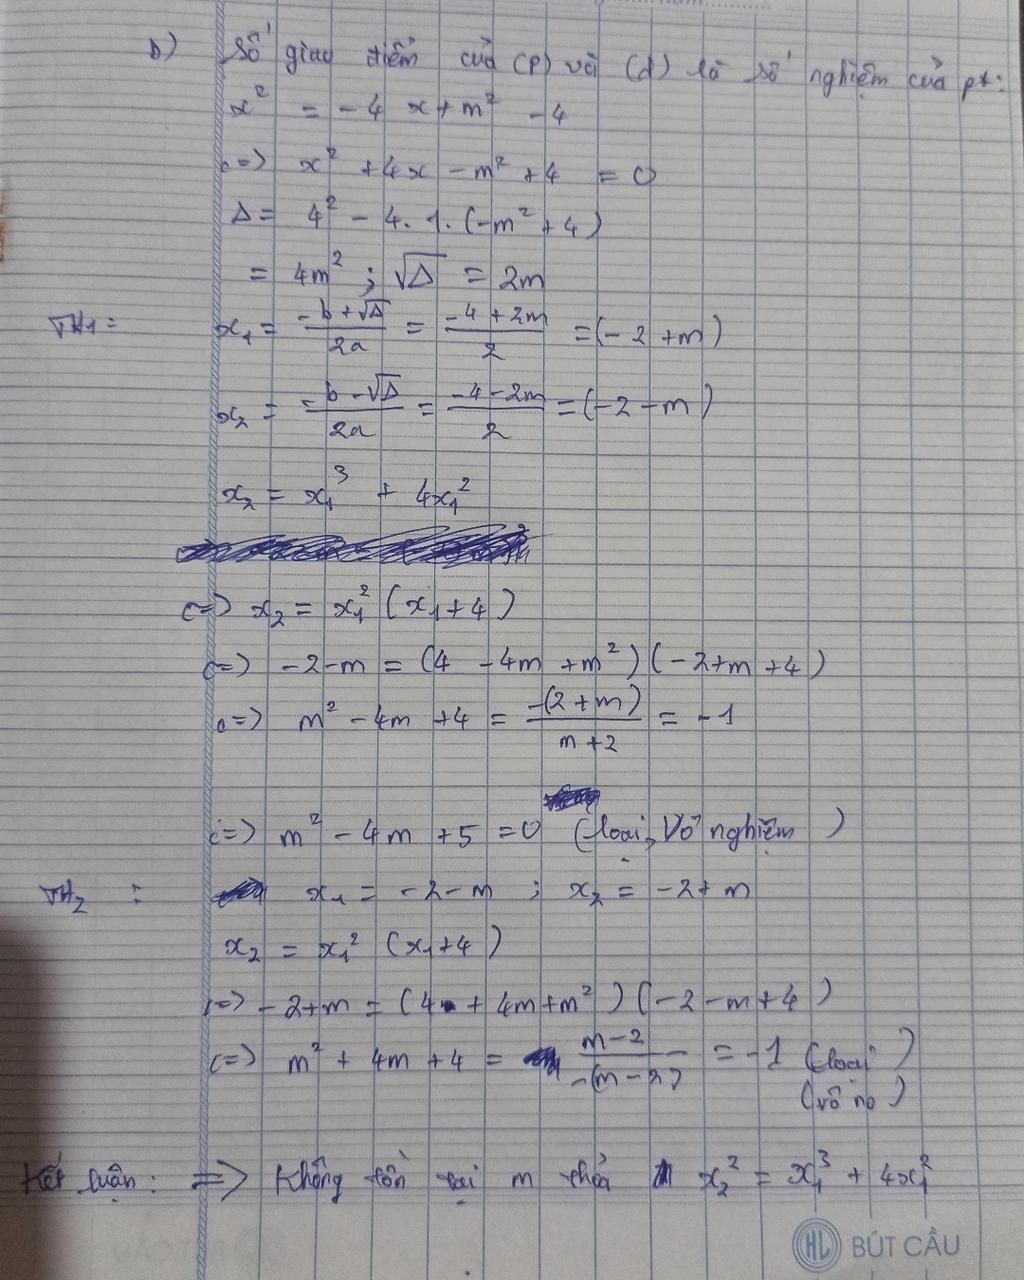 b) Số giao điểm của (P) và (d) là số nghiệm của pt:
x² = -4x + m² - 4
<=> x² + 4x - m² + 4 = 0
Δ = 4² - 4.1.(-m² + 4)
= 4m² ; √Δ = 2m
TH1: x₁ = (-b + √Δ)/2a = (-4 + 2m)/2 = (-2 + m)
x₂ = (-b - √Δ)/2a = (-4 - 2m)/2 = (-2 - m)
x₂ = x₁³ + 4x₁²
<=> x₂ = x₁² (x₁ + 4)
<=> -2 - m = (4 - 4m + m²)(-2 + m + 4)
<=> m² - 4m + 4 = -(2 + m)/(m + 2) = -1
<=> m² - 4m + 5 = 0 (loại, Vô nghiệm)
TH2 : x₁ = -2 - m ; x₂ = -2 + m
x₂ = x₁² (x₁ + 4)
<=> -2 + m = (4 + 4m + m²)(-2 - m + 4)
<=> m² + 4m + 4 = (m - 2)/-(m - 2) = -1 (loại)
(vô no)
Kết luận: => Không tồn tại m thỏa x₂² = x₁³ + 4x₁²
HL BÚT CẦU